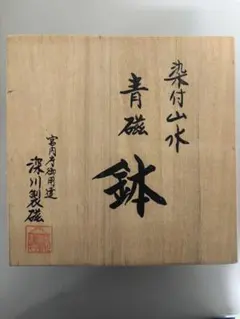 染付山水
青磁
鉢
宮内庁御用達
深川製磁